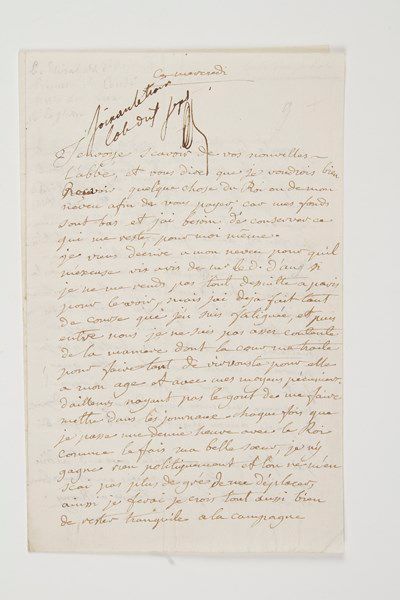 Ce mercredi
J'envoye scavoir de vos nouvelles
L'abbé, et vous dire que je voudrois bien
Recevoir quelque chose du Roi ou de mon
neveu afin de vous payer, car mes fonds
sont bas et j'ai besoin de conserver ce
qui me reste pour moi même.
je vous décrire a mon neveu pour qu'il
m'excuse vis avis de mr le d.
je ne me rends pas tout de suitte a paris
pour le voir, mais j'ai deja fait tant
de course que j'en suis fatiguée, et puis
entre nous je ne suis pas assez contente
de la maniere dont la cour me traite
pour faire tant de vivvouste pour elle
a mon age et avec mes moyens pécuniers,
d'ailleurs, n'ayant pas le gout de me faire
mettre dans les journaux chaque fois que
je passe une demie heure avec le Roi
comme le fais ma belle sœur, je n'y
gagne rien politiquement et l'on ne m'en
scai pas plus de gré de me déplacer,
ainsi je ferai je crois tout aussi bien
de rester tranquile a la campagne